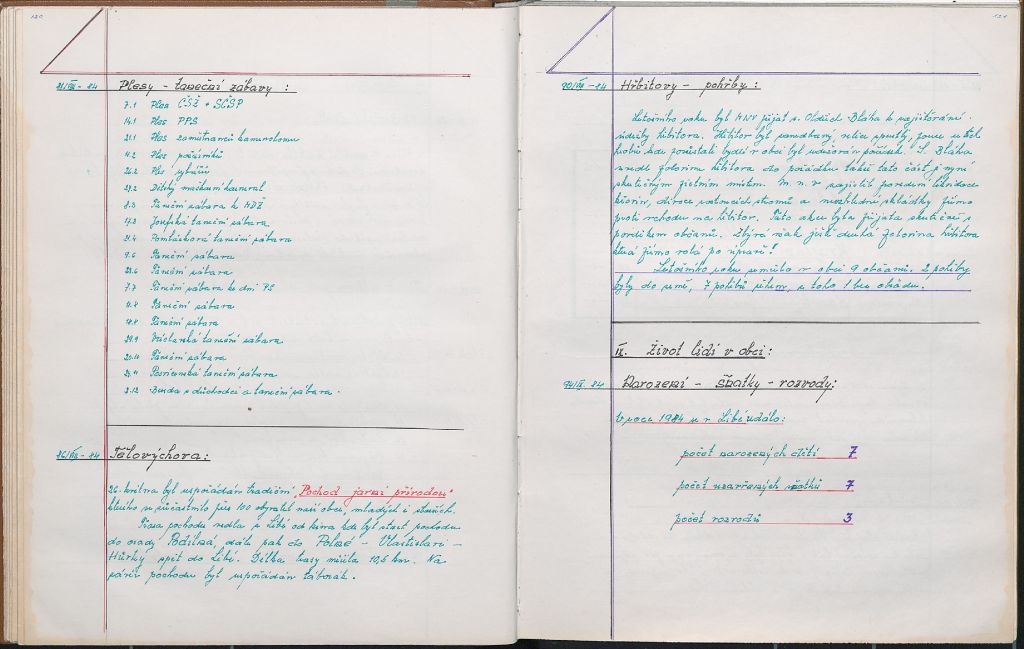 120
31/XII - 84 Plesy - taneční zábavy :
7.1 Ples ČSŽ + SČSP
14.1 Ples PPS
21.1 Ples zaměstnanců kamenolomu
4.2 Ples požárníků
26.2 Ples rybářů
29.2 Dětský maškarní karneval
8.3 Taneční zábava k MDŽ
17.3 Josefská taneční zábava
21.4 Pomlázková taneční zábava
9.6 Taneční zábava
23.6 Taneční zábava
7.7 Taneční zábava ke dni PS
4.8 Taneční zábava
18.8 Taneční zábava
29.9 Václavská taneční zábava
20.10 Taneční zábava
Posvícenská taneční zábava
2.12 Beseda s důchodci a taneční zábava .
26/XII - 84 Tělovýchova:
26. května byl uspořádán tradiční "Pochod jarní přírodou"
kterého se zúčastnilo přes 100 obyvatel naší obce, mladých i starších.
Trasa pochodu vedla z Libé od kina kde byl start pochodu
do osady Podilná, dále pak do Polné - Vlastislavi -
Hůrky zpět do Libé. Délka trasy měřila 10,5 km. Na
závěr pochodu byl uspořádán táborák.
121
90/XII - 84 Hřbitovy - pohřby :
Letošního roku byl MNV přijat s. Oldřich Bláha k zajišťování
údržby hřbitova. Hřbitov byl zanedbaný, velice zpustlý, pouze u těch
hrobů kde pozůstalí bydlí v obci byl udržován pořádek. S. Bláha
uvedl polovinu hřbitova do pořádku takže tato část je nyní
skutečným pietním místem. M. n. v zajistil povolení likvidace
křovin, dřevo vzrostlých stromů a nevzhledné skládky přímo
proti vchodu na hřbitov. Tato akce byla přijata skutečně s
povděkem občanů. Zbývá však ještě druhá polovina hřbitova
která přímo volá po úpravě!
Letošního roku zemřelo v obci 9 občanů. 2 pohřby
byly do země, 7 pohřbů žehem, z toho 1 bez obřadu.
IX. Život lidí v obci:
94/XII - 84 Narození - Sňatky - rozvody:
V roce 1984 se v Libé událo:
počet narozených dětí 7
počet uzavřených sňatků 7
počet rozvodů 3